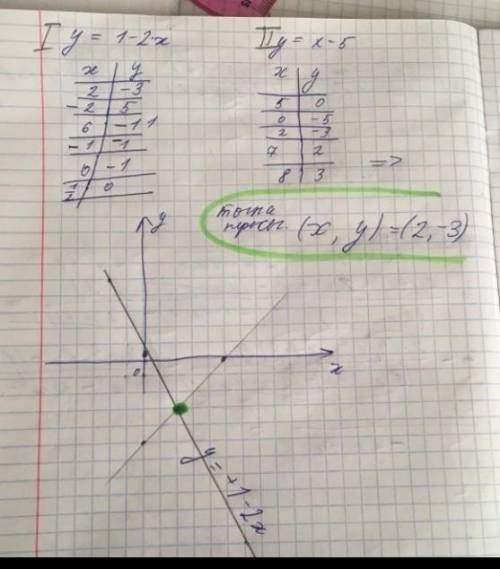 I y = 1-2·x
II y = x-5
x y
2 -3
-2 5
6 -11
-1 -1
0 -1
1/2 0
x y
5 0
0 -5
2 -3
7 2
8 3
=>
тогда
(x, y) = (2,-3)
y
x
0
y = +1-2x